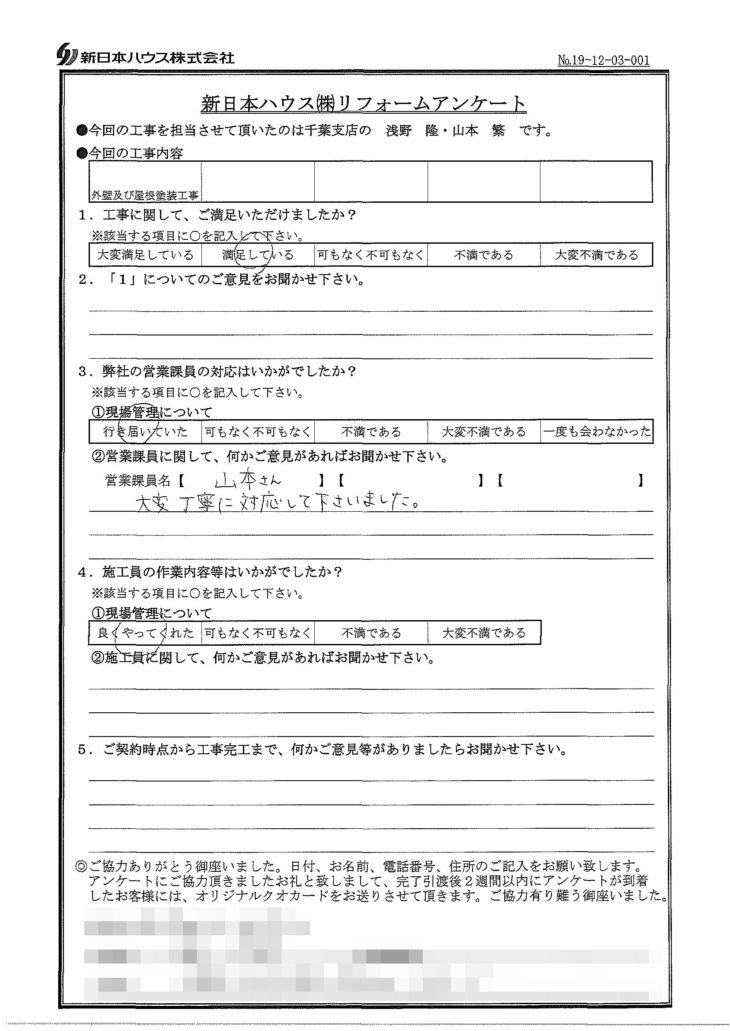 新日本ハウス株式会社
№19-12-03-001
新日本ハウス㈱リフォームアンケート
●今回の工事を担当させて頂いたのは千葉支店の　浅野　隆・山本　繁　です。
●今回の工事内容
外壁及び屋根塗装工事
1．工事に関して、ご満足いただけましたか？
※該当する項目に○を記入して下さい。
大変満足している　満足している　可もなく不可もなく　不満である　大変不満である
2．「1」についてのご意見をお聞かせ下さい。
3．弊社の営業課員の対応はいかがでしたか？
※該当する項目に○を記入して下さい。
①現場管理について
行き届いていた　可もなく不可もなく　不満である　大変不満である　一度も会わなかった
②営業課員に関して、何かご意見があればお聞かせ下さい。
営業課員名【　山本さん　】【　】【　】
大変丁寧に対応して下さいました。
4．施工員の作業内容等はいかがでしたか？
※該当する項目に○を記入して下さい。
①現場管理について
良くやってくれた　可もなく不可もなく　不満である　大変不満である
②施工員に関して、何かご意見があればお聞かせ下さい。
5．ご契約時点から工事完工まで、何かご意見等がありましたらお聞かせ下さい。
◎ご協力ありがとう御座いました。日付、お名前、電話番号、住所のご記入をお願い致します。
アンケートにご協力頂きましたお礼と致しまして、完了引渡後2週間以内にアンケートが到着
したお客様には、オリジナルクオカードをお送りさせて頂きます。ご協力有り難う御座いました。